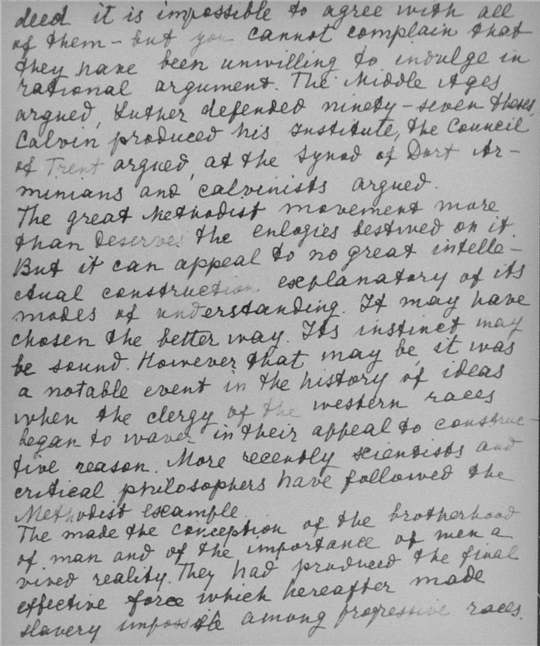 deed it is impossible to agree with all
of them - but you cannot complain that
they have been unwilling to indulge in
rational argument. The Middle Ages
argued, Luther defended ninety-seven theses,
Calvin produced his Institute, the Council
of Trent argued, at the Synod of Dort Ar-
minians and Calvinists argued.
The great Methodist movement more
than deserves the enlogies bestived on it.
But it can appeal to no great intelle-
ctual construction explanatory of its
modes of understanding. It may have
chosen the better way. Its instinct may
be sound. However that may be, it was
a notable event in the history of ideas
when the clergy of the western races
began to waver in their appeal to construc-
tive reason. More recently scientists and
critical philosophers have followed the
Methodist example.
The made the conception of the brotherhood
of man and of the importance of men a
vived reality. They had produced the final
effective force which hereafter made
slavery impossible among progressive races.